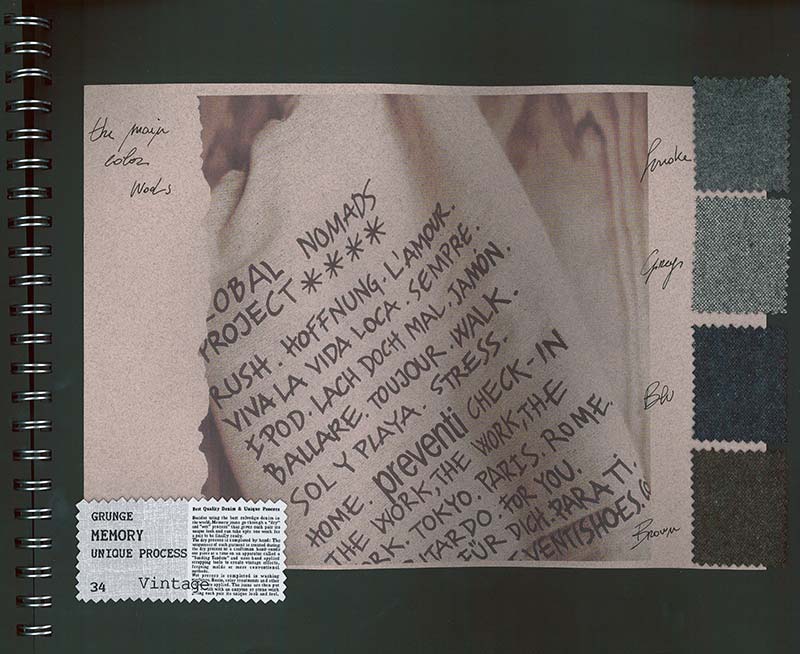 the main
color
Wools
LOBAL NOMADS
PROJECT ****
RUSH. HOFFNUNG. L'AMOUR.
VIVA LA VIDA LOCA. SEMPRE.
IPOD. LACH DOCH MAL. JAMON.
BALLARE. TOUJOUR. WALK.
SOL Y PLAYA. STRESS.
HOME. preventi CHECK-IN
THE WORK, THE WORK, THE
RK. TOKYO. PARIS. ROME.
RITARDO. FOR YOU.
FÜR DICH. PARA TI.
VENTISHOES.
Smoke
Greys
Blu
Brown
GRUNGE
MEMORY
UNIQUE PROCESS
34 Vintage
Best Quality Denim & Unique Process